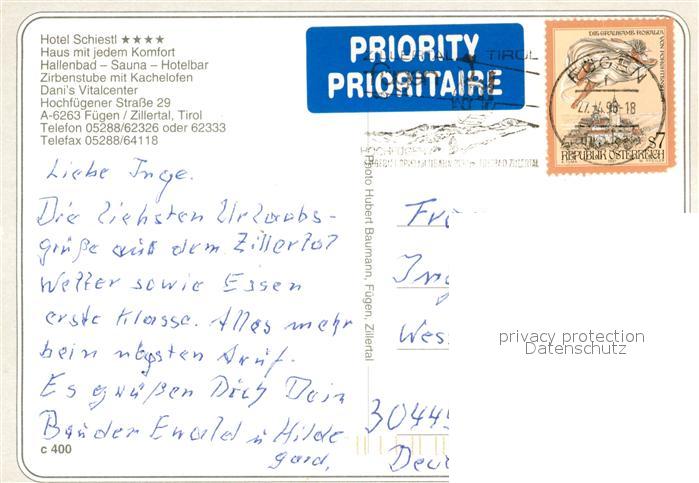 Hotel Schiestl ★★★★
Haus mit jedem Komfort
Hallenbad – Sauna – Hotelbar
Zirbenstube mit Kachelofen
Dani's Vitalcenter
Hochfügener Straße 29
A-6263 Fügen / Zillertal, Tirol
Telefon 05288/62326 oder 62333
Telefax 05288/64118
PRIORITY
PRIORITAIRE
TIROL
FÜGEN
DIE GRAUSAME ROSALIA
VON FORCHTENSTEIN
s7
REPUBLIK ÖSTERREICH
Liebe Inge.
Die liebsten Urlaubs-
grüße aus dem Zillertal
Wetter sowie Essen
erste Klasse. Alles mehr
beim nägsten Anruf.
Es grüßen Dich Dein
Bruder Ewald u Hilde
gard,
c 400
Photo Hubert Baumann, Fügen, Zillertal
Fr
Ing
Wes
30449
Deu
privacy protection
Datenschutz